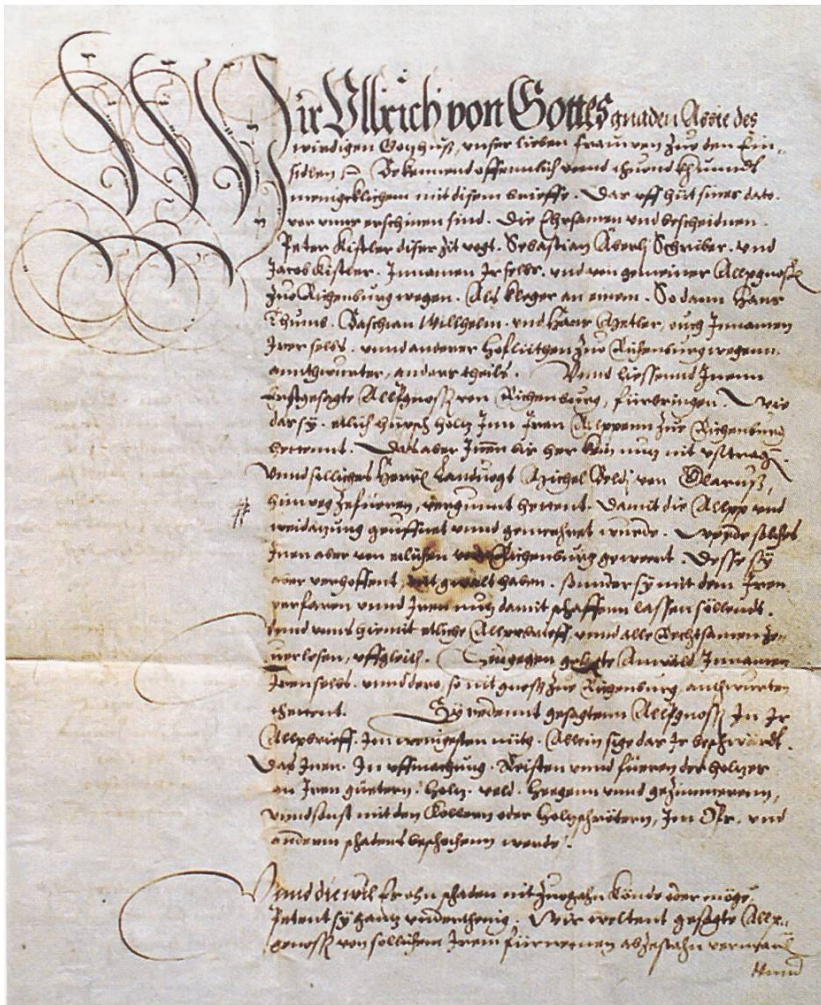 Wir Ullrich von Gottes gnaden Abbte des
wirdigen Gotzhuß, unser lieben Frauwen zue den Ein-
sidlen Bekennend offennlich unnd thuend khundt
menigklichem mit disem brieffe. Das uff hüt sines dato.
vor unns erschinen sind. Die Ehrsamen und bescheidnen.
Peter Kistler diser zit vogt. Sebastian Schriber. und
Jacob Kistler. Innamen Ir selbs. und von gemeiner Allpgnoss
zue Richenburg wegen. Als kleger an einem. So dann Hans
Thumb. Baschian Willhelm. und Hans ouch Innamen
Irer selbs. unnd anderer Hoflüthen zue Richenburg wegenn.
annthwurter, anders theils. Unnd liessend Inenn
Erstgesagte Allpgnoss von Richenburg, fürbringen. Wie
das sy. etlich holtz Inn Iren Allppenn zue Richenburg
hettent. Das aber Inen bis her kein nutz nit
Unnd sollichs Herr Landtvogt Michel von Glaruß,
hinweg zefüeren, vergunnt hettent. Damit die Allpp und
weidnung geüffnet unnd gemehret wurde. solches
Inen aber von etlichen Richenburg gewert. Desse sy
aber verhoffent, nit gwalt haben. sunder sy mit dem Iren
verfaren unnd Iren nutz damit schaffenn lassen söllendt.
Unnd unns hiemit etliche unnd alle Rechtsamen ze-
verlesen, uffgleith. gesagte Anwäld Innamen
Iren selbs. unnd dero, so nit gnoss zue Richenburg. anthwurten
thettent. Sy redennt gesagtenn Allpgnoss In Ir
Allpbrieff. Im wenigesten nütz. Allein sige das Ir beschwärdt.
Das Inen. In uffmachung. Reisten unnd füeren des holtzes
an Iren güetern. Holtz. veld. Heegenn unnd gezimmerenn,
unnd sunst mit den Kolleren oder Holtzschrötern, Im und
anderm schadens beschechenn werde.
Unnd diewil Er ohn schaden nit zuegahn könde oder möge.
Petent sy gantz underthenig. Wir weltent gesagte Allp-
gnoss von sollichem Irem fürnemen abzestahn
Unnd